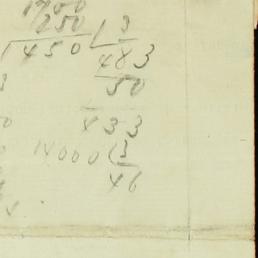 1700
250 ( 3
1450 483
3 50
0 433
14000 ( 3
46